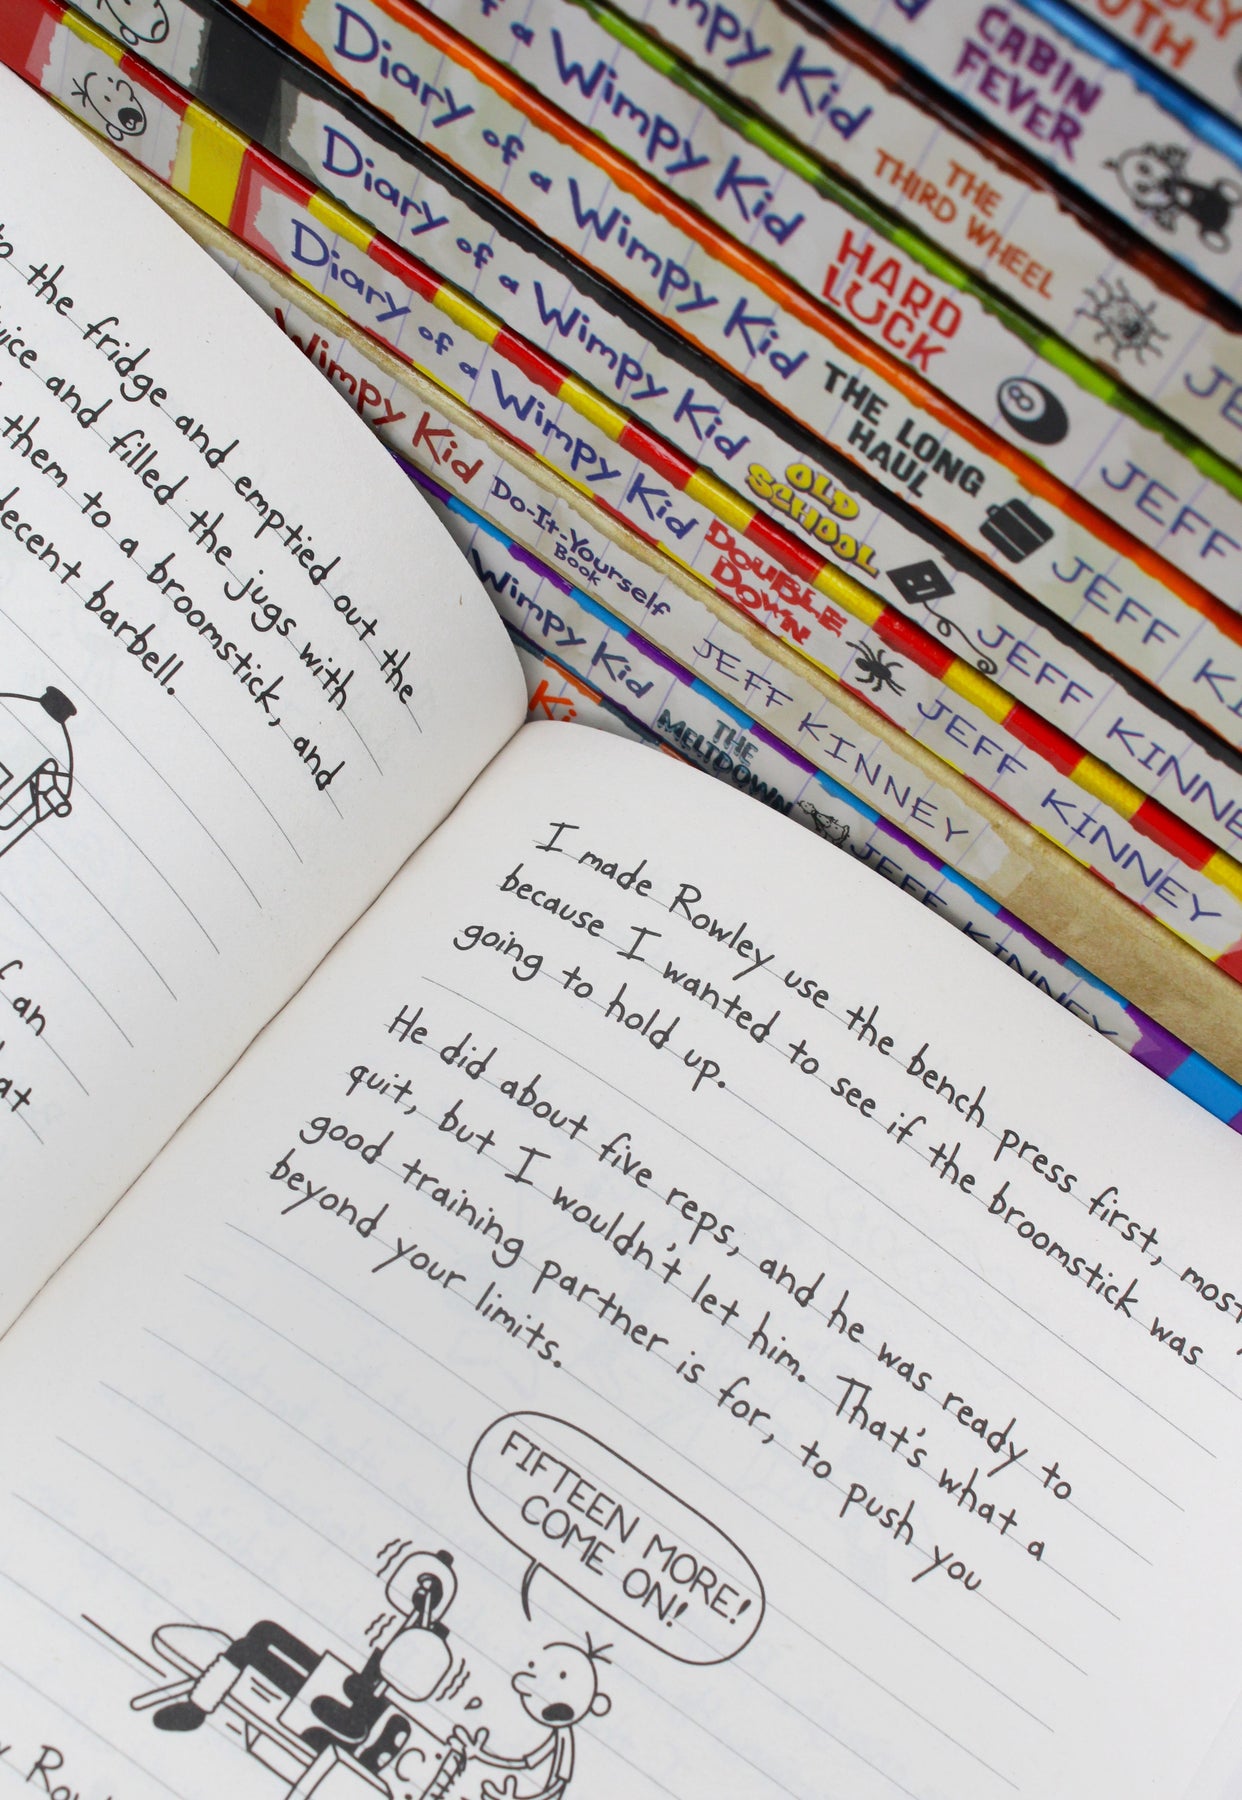 CABIN
FEVER
Wimpy Kid
THE
THIRD WHEEL
of a Wimpy Kid
HARD
LUCK
JEFF
Diary of a Wimpy Kid
THE LONG
HAUL
JEFF
Diary of a Wimpy Kid
OLD
SCHOOL
JEFF KINNEY
Diary of a Wimpy Kid
DOUBLE
DOWN
JEFF KINNEY
Wimpy Kid
Do-It-Yourself
Book
JEFF KINNEY
Wimpy Kid
THE
MELTDOWN
JEFF KINNEY
the fridge and emptied out the
and filled the jugs with
them to a broomstick, and
decent barbell.
an
I made Rowley use the bench press first,
because I wanted to see if the broomstick was
going to hold up.
He did about five reps, and he was ready to
quit, but I wouldn't let him. That's what a
good training partner is for, to push you
beyond your limits.
FIFTEEN MORE!
COME ON!